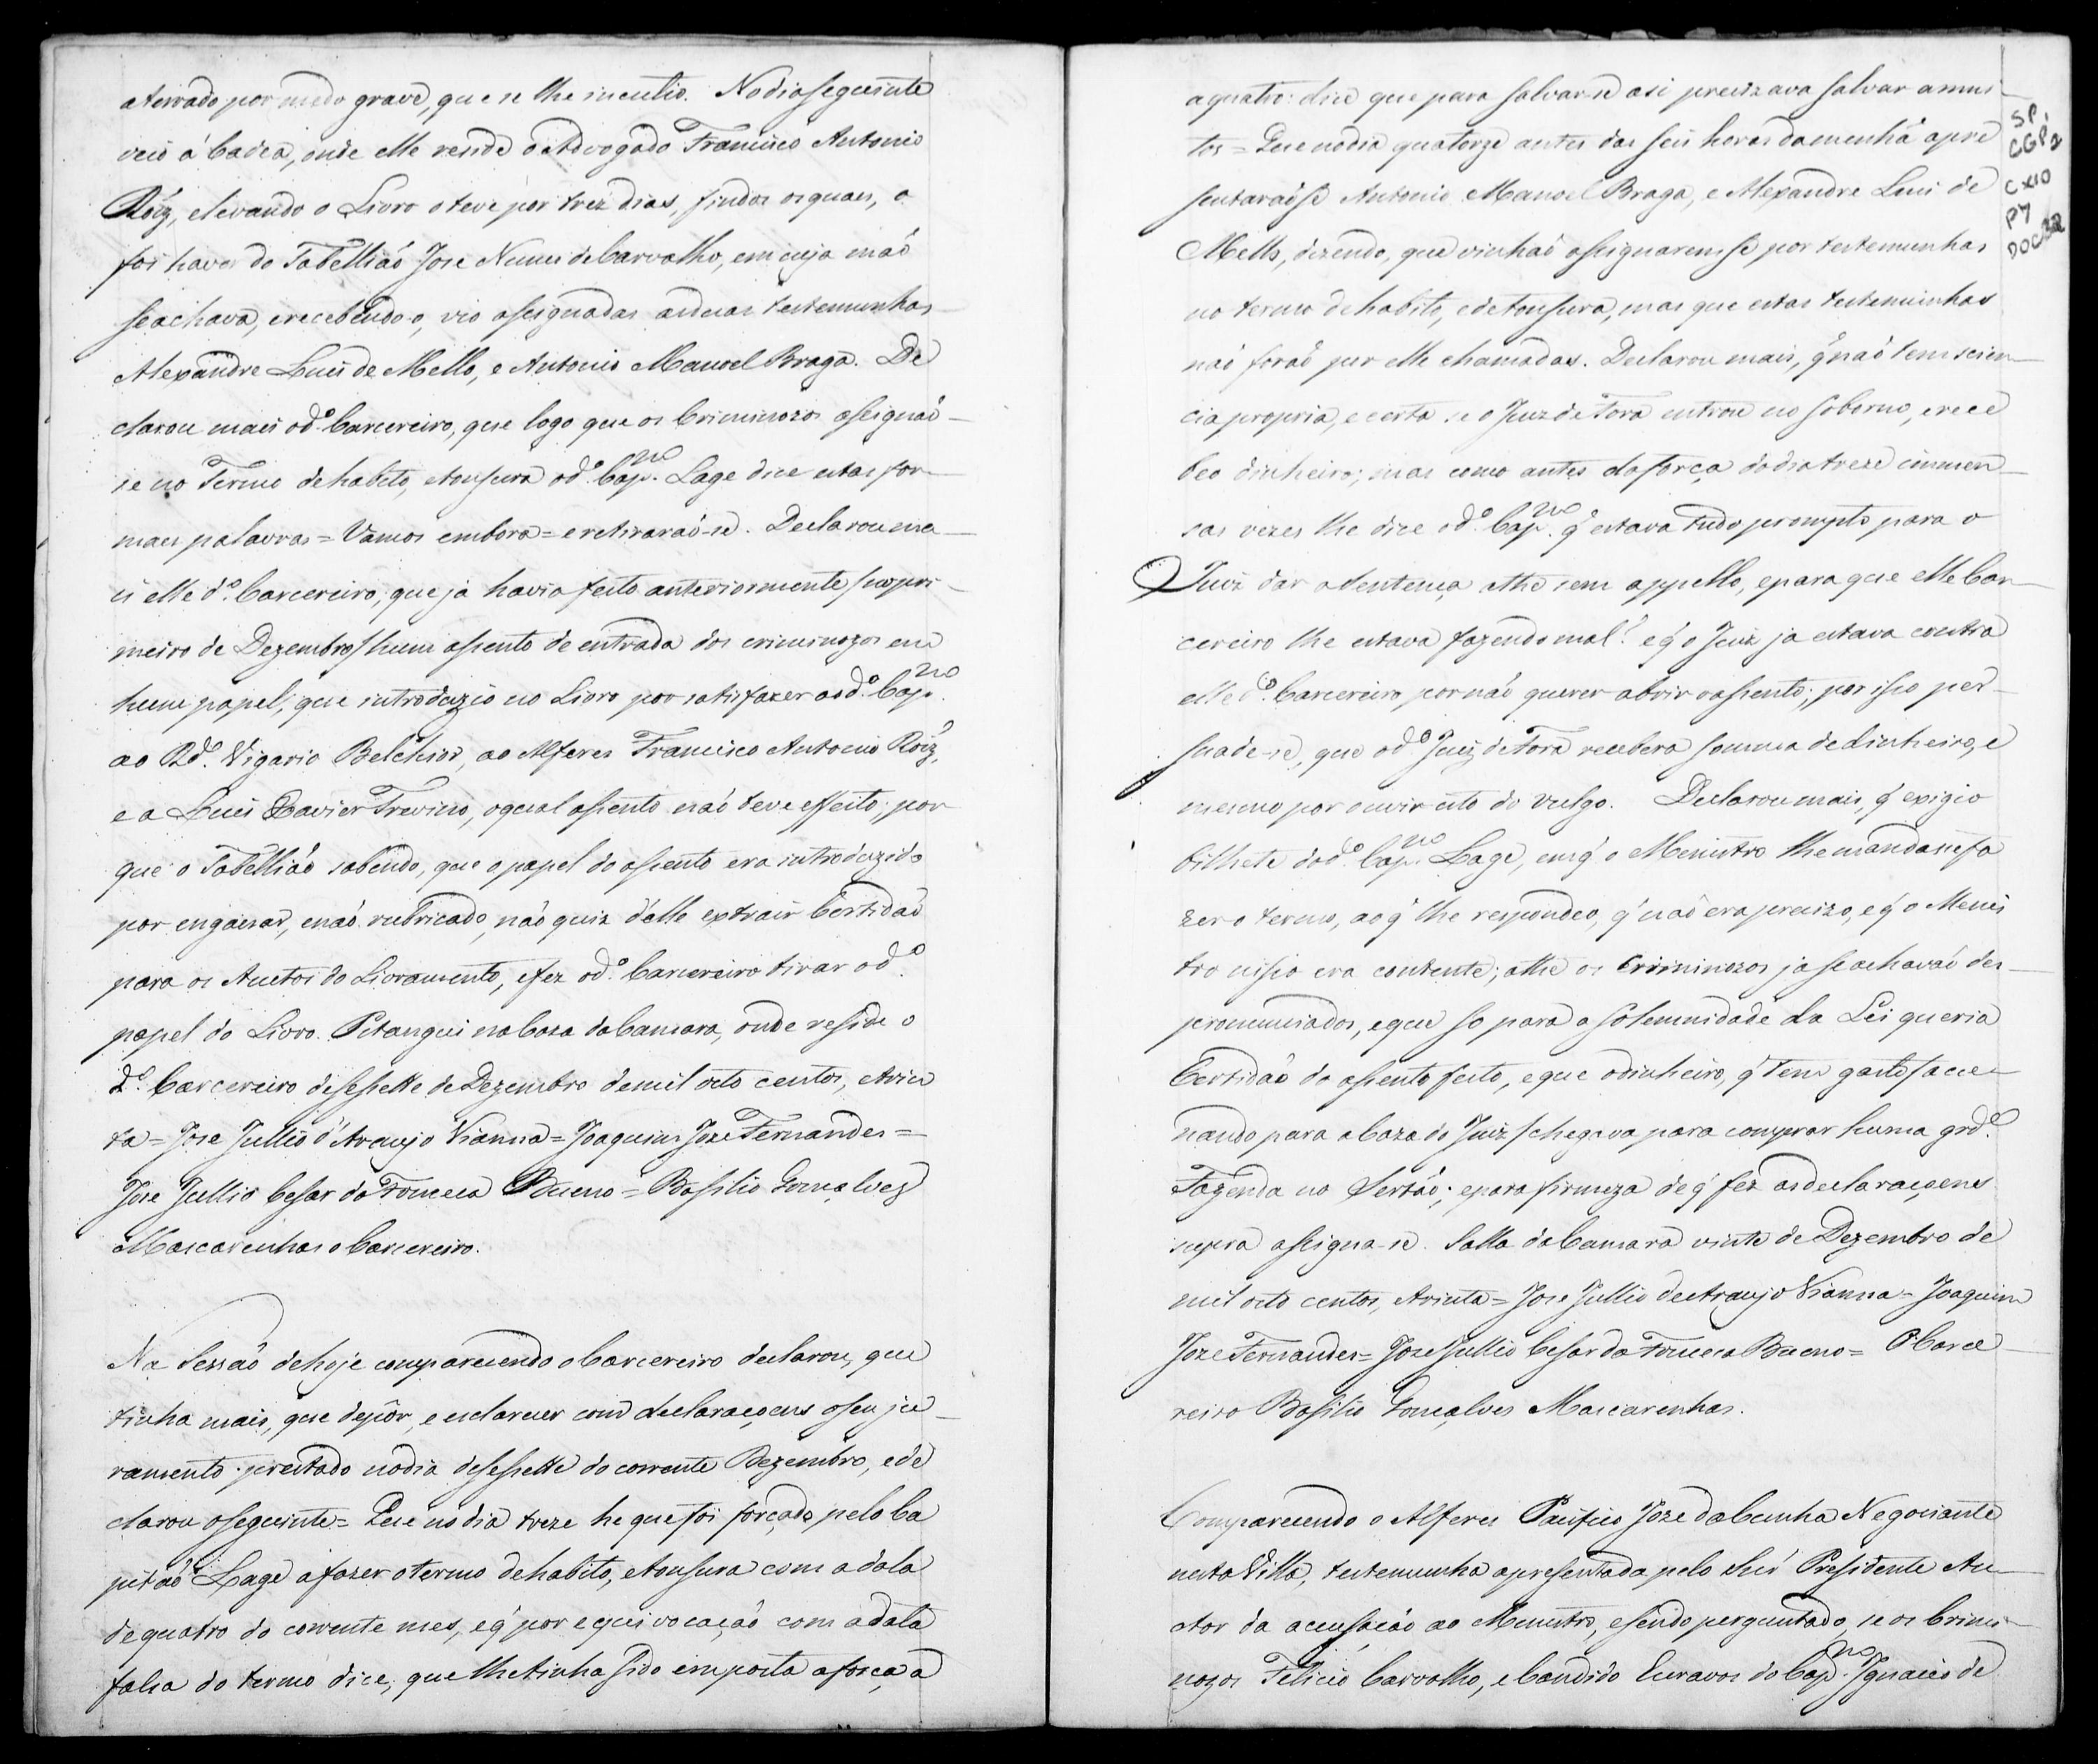 aterrado por medo grave, que se lhe incutio. No dia seguinte
veio á Cadea, onde elle reside o Advogado Francisco Antonio
Roiz, e levando o Livro o teve por trez dias, findos os quaes, o
foi haver do Tabelliaõ Joze Nunes de Carvalho, em cuja maõ
se achava, e recebendo-o, vio assignadas as duas testemunhas
Alexandre Luis de Mello, e Antonio Manoel Braga. De
clarou mais o d.º Carcereiro, que logo que os Criminozos assignaõ-
se no Termo de habito, e tonsura o d.º Cap.ᵐ Lage dice estas for-
maes palavras = Vamos embora = e retiraraõ-se. Declarou ma-
is elle d.º Carcereiro, que ja havia feito anteriormente no pri-
meiro de Dezembro hum assento de entrada dos criminozos em
hum papel, que introduzio no Livro por satisfazer ao d.º Cap.ᵐ
ao Rd.º Vigario Belchior, ao Alferes Francisco Antonio Roiz,
e a Luis Xavier Trevino, o qual assento naõ teve effeito; por
que o Tabelliaõ sabendo, que o papel do assento era introduzido
por enganar, e naõ rubricado, naõ quiz d'elle extrair Certidaõ
para os Auctos do Livramento, e fez o d.º Carcereiro tirar o d.º
papel do Livro. Pitangui na Caza da Camara, onde reside o
d.º Carcereiro desessette de Dezembro de mil oito centos, e trin
ta = Joze Jullio d'Araujo Vianna = Joaquim Joze Fernandes =
Joze Jullio Cesar da Fonceca Bueno = Basilio Gonçalves
Mascarenhas o Carcereiro.
Na Sessaõ de hoje comparecendo o Carcereiro declarou, que
tinha mais, que depôr, e esclarecer com declaraçoens o seu ju-
ramento prestado no dia desessette do corrente Dezembro, e de
clarou o seguinte = Que no dia treze he que foi forçado pelo Ca
pitaõ Lage a fazer o termo de habito, e tonsura com a data
de quatro do corrente mes, e q' por equivocaçaõ com a data
falsa do termo dice, que lhe tinha sido imposta a força a
a quatro: dice que para salvar-se a si precizava salvar a mui-
tos = Que no dia quatorze antes das seis horas da menhã apre
sentaraõse Antonio Manoel Braga, e Alexandre Luis de
Mello, dizendo, que vinhaõ assignarem-se por testemunhas
no termo de habito, e de tonsura, mas que estas testemunhas
naõ foraõ por elle chamadas. Declarou mais, q' naõ tem scien-
cia propria, e certa se o Juiz de Fora entrou no soborno, e rece
beo dinheiro; mas como antes da força do dia treze immen-
sas vezes lhe dice o d.º Cap.ᵐ q' estava tudo prompto para o
Juiz dar a Sentença athe sem appello, e para que elle Car-
cereiro lhe estava fazendo mal! e q' o Juiz ja estava contra
elle d.º Carcereiro por naõ querer abrir o assento; por isso per-
suade-se, que o d.º Juiz de Fora recebera somma de dinheiro, e
mesmo por ouvir isto do vulgo. Declarou mais, q' exigio
bilhete do d.º Cap.ᵐ Lage, em q' o Menistro lhe mandasse fa
zer o termo, ao q' lhe respondeo, q' naõ era precizo, e q' o Menis
tro nisso era contente; athe os Criminozos ja se achavaõ des-
pronunciados, e que so para a solemnidade da Lei queria
Certidaõ do assento feito, e que o dinheiro, q' tem gasto
nando para a Caza do Juiz chegava para comprar huma grd.ᵉ
Fazenda no Sertaõ; e para firmeza de q' fez as declaraçoens
supra assigna-se. Salla da Camara vinte de Dezembro de
mil oito centos, e trinta = Joze Jullio de Araujo Vianna = Joaquim
Joze Fernandes = Joze Jullio Cesar da Fonceca Bueno = O Carce
reiro Basilio Gonçalves Mascarenhas.
Comparecendo o Alferes Pacifico Joze da Cunha Negociante
nesta Villa, testemunha apresentada pelo Snr' Presidente Au-
ctor da accusaçaõ ao Menistro, e sendo perguntado, se os Crimi-
nozos Felicio Carvalho, e Candido Escravos do Cap.ᵐ Ignacio de
SP,
CGP2
CX10
P7
DOC 32